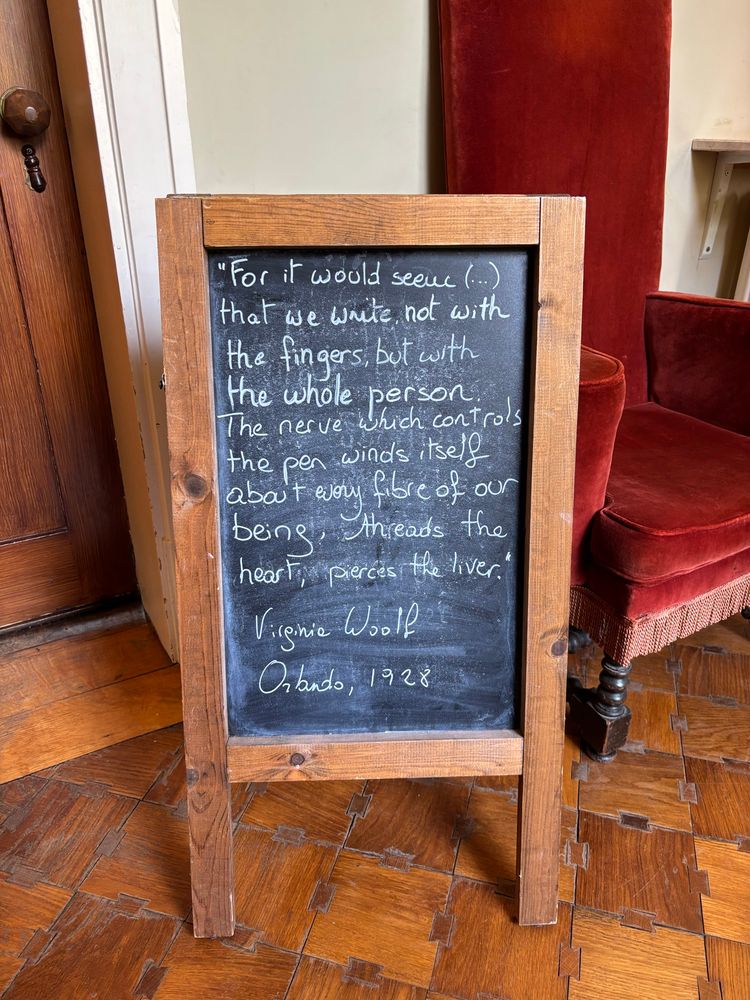 "For it would seem (...)
that we write, not with
the fingers, but with
the whole person.
The nerve which controls
the pen winds itself
about every fibre of our
being, threads the
heart, pierces the liver."
Virginia Woolf
Orlando, 1928